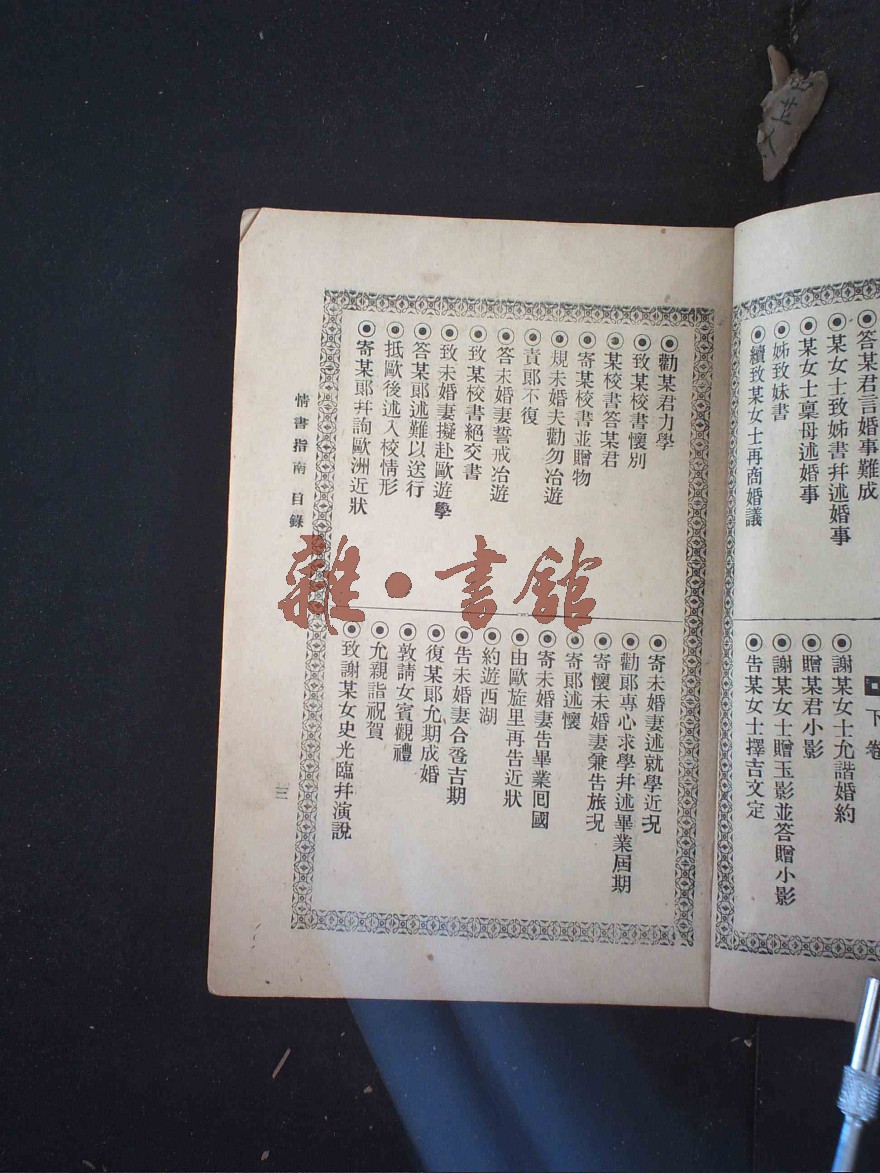 答某君言婚事難成
某女士致姊書幷述婚事
某女士稟母述婚事
姊致妹書
續致某女士再商婚議
下卷
謝某女士允諧婚約
贈某君小影
謝某女士贈玉影並答贈小影
告某女士擇吉文定
勸某君力學
致某校書懷別
某校書答某君
寄某校書並贈物
規未婚夫勸勿冶遊
責郞不復
答未婚妻誓戒冶遊
致某校書絕交書
致未婚妻擬赴歐遊學
答某郞述難以送行
抵歐後述入校情形
寄某郞幷詢歐洲近狀
寄未婚妻述就學近況
勸郞專心求學幷述畢業屆期
寄懷未婚妻兼告旅況
寄郞述懷
寄未婚妻告畢業囘國
由歐旋里再告近狀
約遊西湖
告未婚妻合卺吉期
復某郞允期成婚
敦請女賓觀禮
允親詣祝賀
致謝某女史光臨幷演說
情書指南 目錄
三
雜·書館